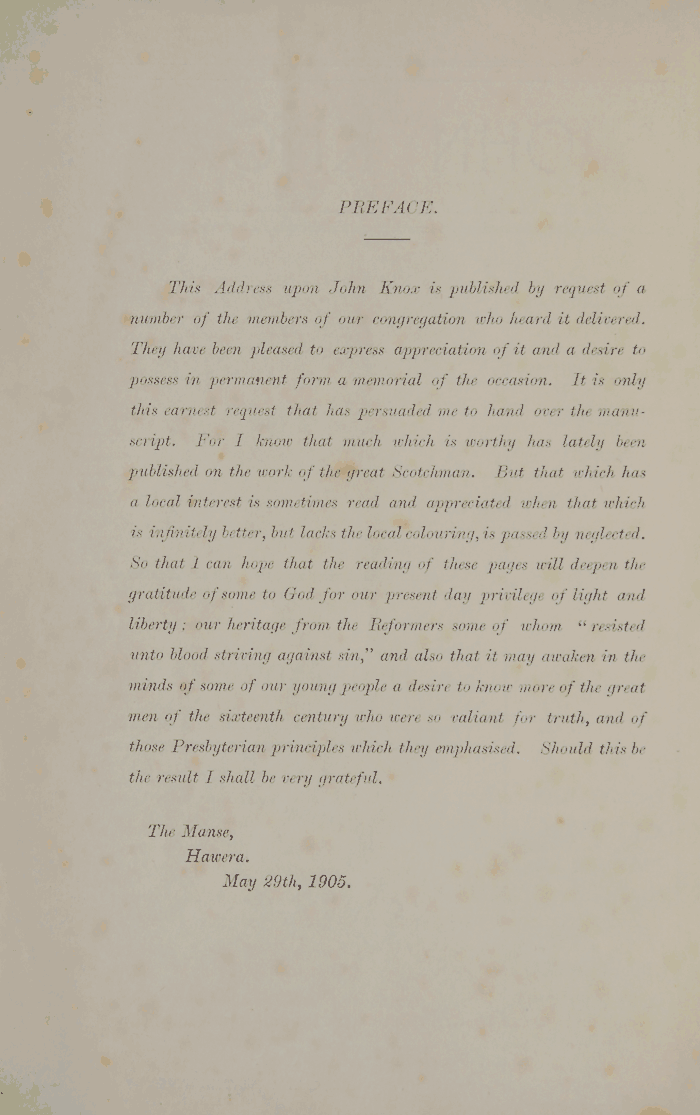 PREFACE.
This Address upon John Knox is published by request of a
number of the members of our congregation who heard it delivered.
They have been pleased to express appreciation of it and a desire to
possess in permanent form a memorial of the occasion. It is only
this earnest request that has persuaded me to hand over the manu-
script. For I know that much which is worthy has lately been
published on the work of the great Scotchman. But that which has
a local interest is sometimes read and appreciated when that which
is infinitely better, but lacks the local colouring, is passed by neglected.
So that I can hope that the reading of these pages will deepen the
gratitude of some to God for our present day privilege of light and
liberty; our heritage from the Reformers some of whom “resisted
unto blood striving against sin,” and also that it may awaken in the
minds of some of our young people a desire to know more of the great
men of the sixteenth century who were so valiant for truth, and of
those Presbyterian principles which they emphasised. Should this be
the result I shall be very grateful.
The Manse,
Hawera.
May 29th, 1905.